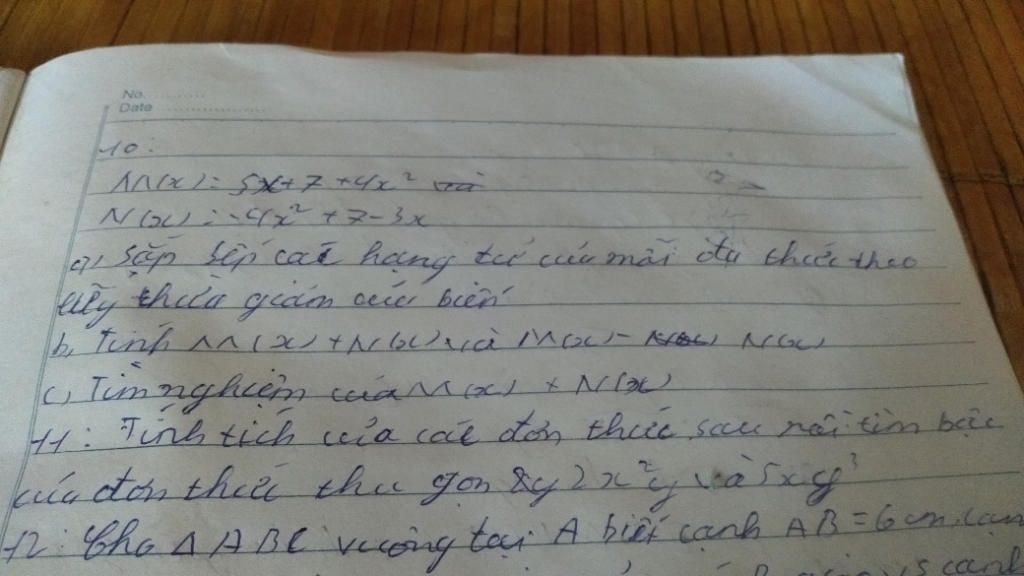 No. ..........
Date ....................
10:
M(x) = 5x+7+4x² và
N(x) = -4x² + 7 - 3x
a, sắp sếp các hạng tử của mỗi đa thức theo
lũy thừa giảm của biến
b, Tính M(x) + N(x) và M(x) - N(x) N(x)
c, Tìm nghiệm của M(x) + N(x)
11: Tính tích của các đơn thức sau rồi tìm bậc
của đơn thức thu gọn 2x²y và 5xy³
12: Cho Δ ABC vuông tại A biết cạnh AB = 6 cm, cạn
cạnh